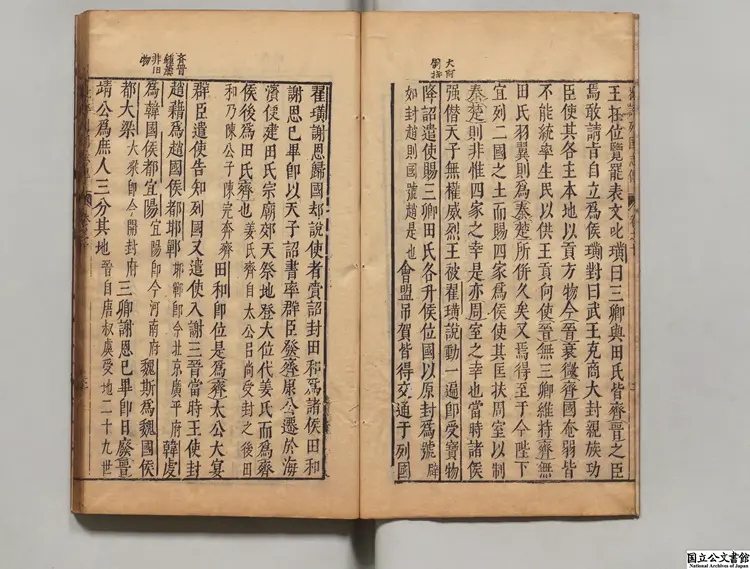 大有
劉拆
王在位覽罷表文叱璜曰三卿與田氏皆齊晉之臣
焉敢請旨自立爲侯璜對曰武王克商大封親族功
臣使其各主本地以貢方物今晉衰微齊國奄弱皆
不能統率生民以供王貢向使晉無三卿維持齊無
田氏羽翼則爲秦楚所併久矣又焉得至于今陛下
宜列二國之土而賜四家爲侯使其匡扶周室以制
秦楚則非惟四家之幸是亦周室之幸也當時諸侯
強僭天子無權威烈王被翟璜說動一遍即受寶物
降詔遣使賜三卿田氏各升侯位國以原封爲號辟
如封趙則國號趙是也會盟吊賀皆得交通于列國
齊晉
種葉
非旧
物
翟璜謝恩歸國却說使者賫詔封田和爲諸侯田和
謝恩已畢即以天子詔書率群臣發齊康公遷於海
濱使建田氏宗廟郊天祭地登大位代姜氏而爲齊
侯後爲田氏齊也姜氏齊自太公呂尚受封之後田
和乃陳公子陳完奔齊田和即位是爲齊太公大宴
群臣遣使告知列國又遣使入謝三晉當時王使封
趙藉爲趙國侯都邯鄲邯鄲即今北京廣平府韓虔
爲韓國侯都宜陽宜陽即今河南府魏斯爲魏國侯
都大梁大梁即今開封府三卿謝恩已畢即日廢晉
靖公爲庶人三分其地晉自唐叔虞受地二十九世
國立公文書館
National Archives of Japan